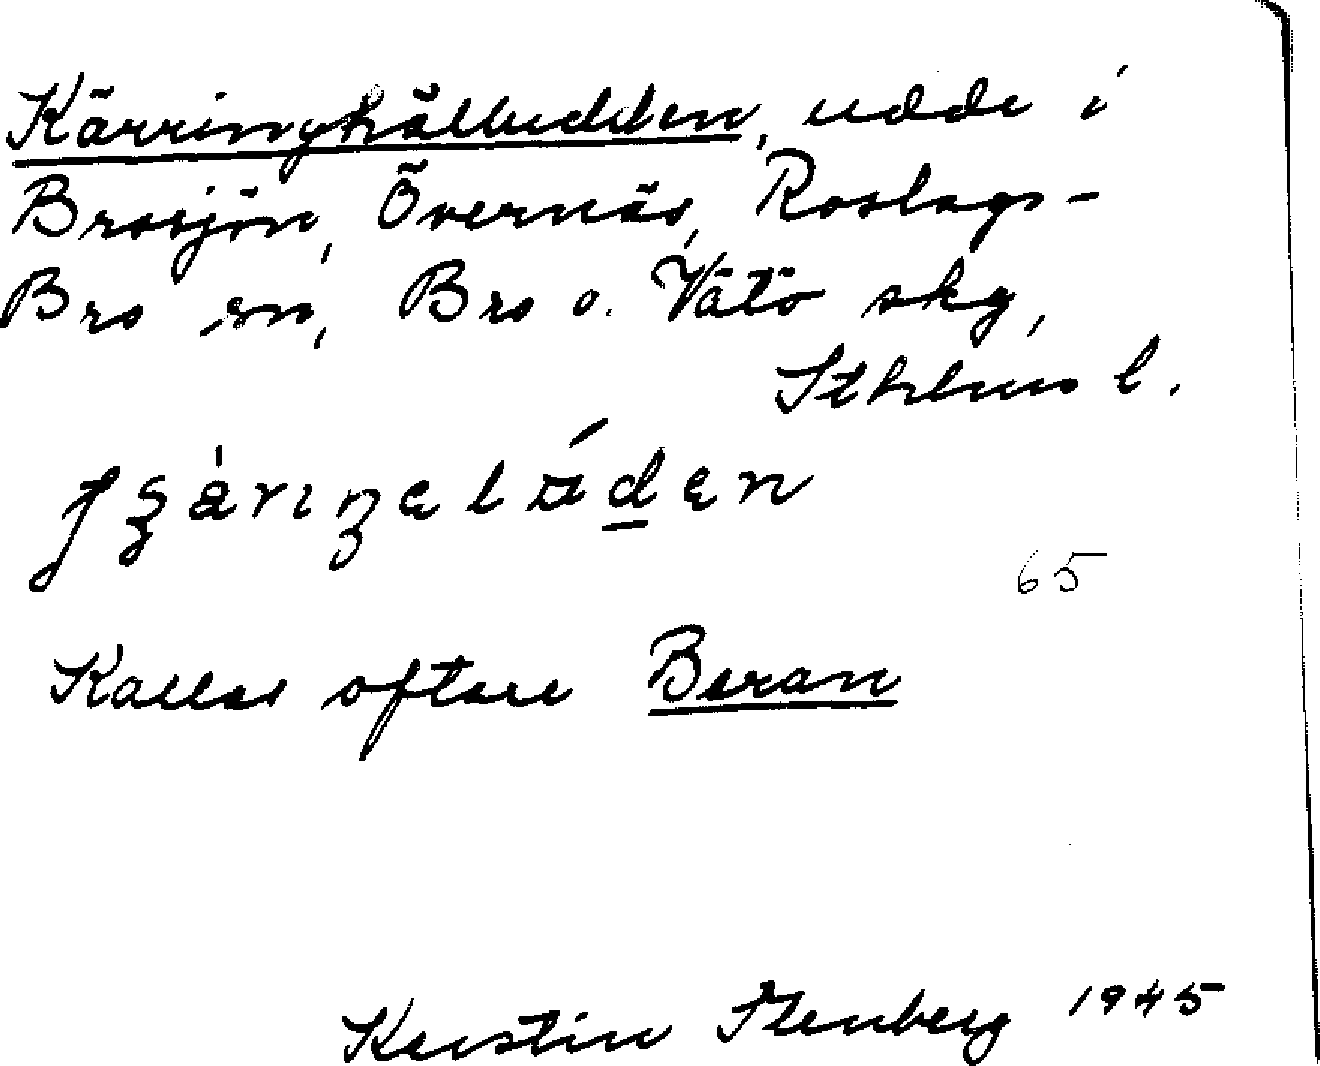 Kärringhålludden, udde i
Brosjön, Övernäs, Roslags-
Bro sn, Bro o. Vätö skg,
Sthlms l.
65
Kallas oftare Beran
Kerstin Stenberg 1945